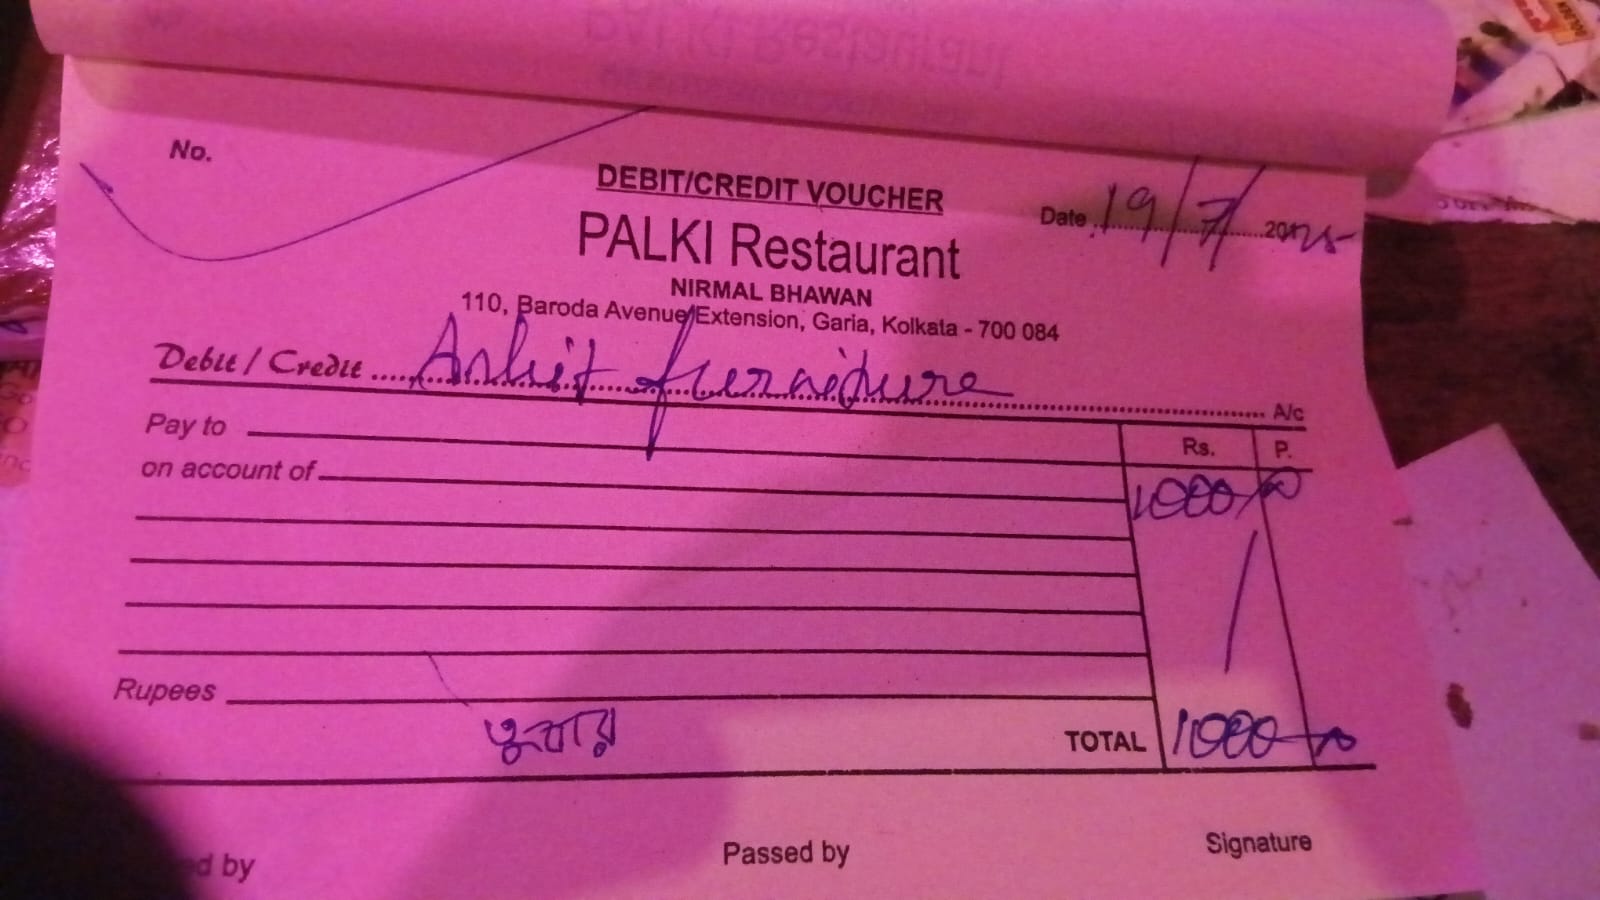 No.
DEBIT/CREDIT VOUCHER
Date 19/7/2025
PALKI Restaurant
NIRMAL BHAWAN
110, Baroda Avenue Extension, Garia, Kolkata - 700 084
Debit / Credit Ankit furniture A/c
Pay to Rs. P.
on account of 1000/00
Rupees
তুষার
TOTAL 1000-00
ed by Passed by Signature